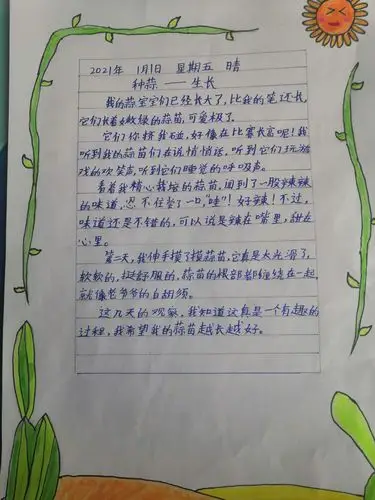 2021年 1月1日 星期五 晴
种蒜——生长
我的蒜宝宝们已经长大了,比我的笔还长,
它们长着嫩绿的蒜苗,可爱极了。
它们你挤我碰,好像在比赛长高呢!我
听到我的蒜苗们在说悄悄话,听到它们玩游
戏的欢笑声,听到它们睡觉的呼吸声。
看着我精心栽培的蒜苗,闻到了一股辣辣
的味道,忍不住尝了一口,“哇”!好辣!不过,
味道还是不错的,可以说是辣在嘴里,甜在
心里。
第二天,我伸手摸了摸蒜苗,它真是太光滑了,
软软的,挺舒服的,蒜苗的根部都缠绕在一起,
就像老爷爷的白胡须。
这几天的观察,我知道这真是一个有趣的
过程,我希望我的蒜苗越长越好。